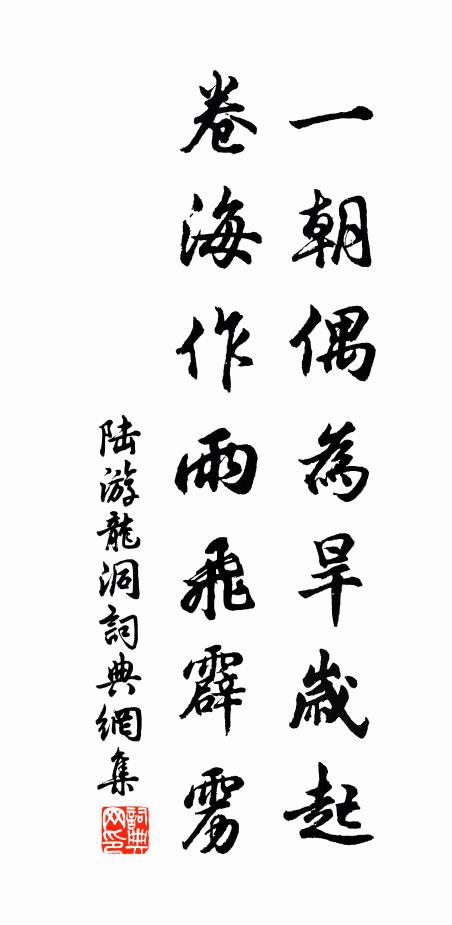 一朝偶為旱歲起
卷海作雨飛霹雳
陆游龍洞詞典網集
詞典
网印